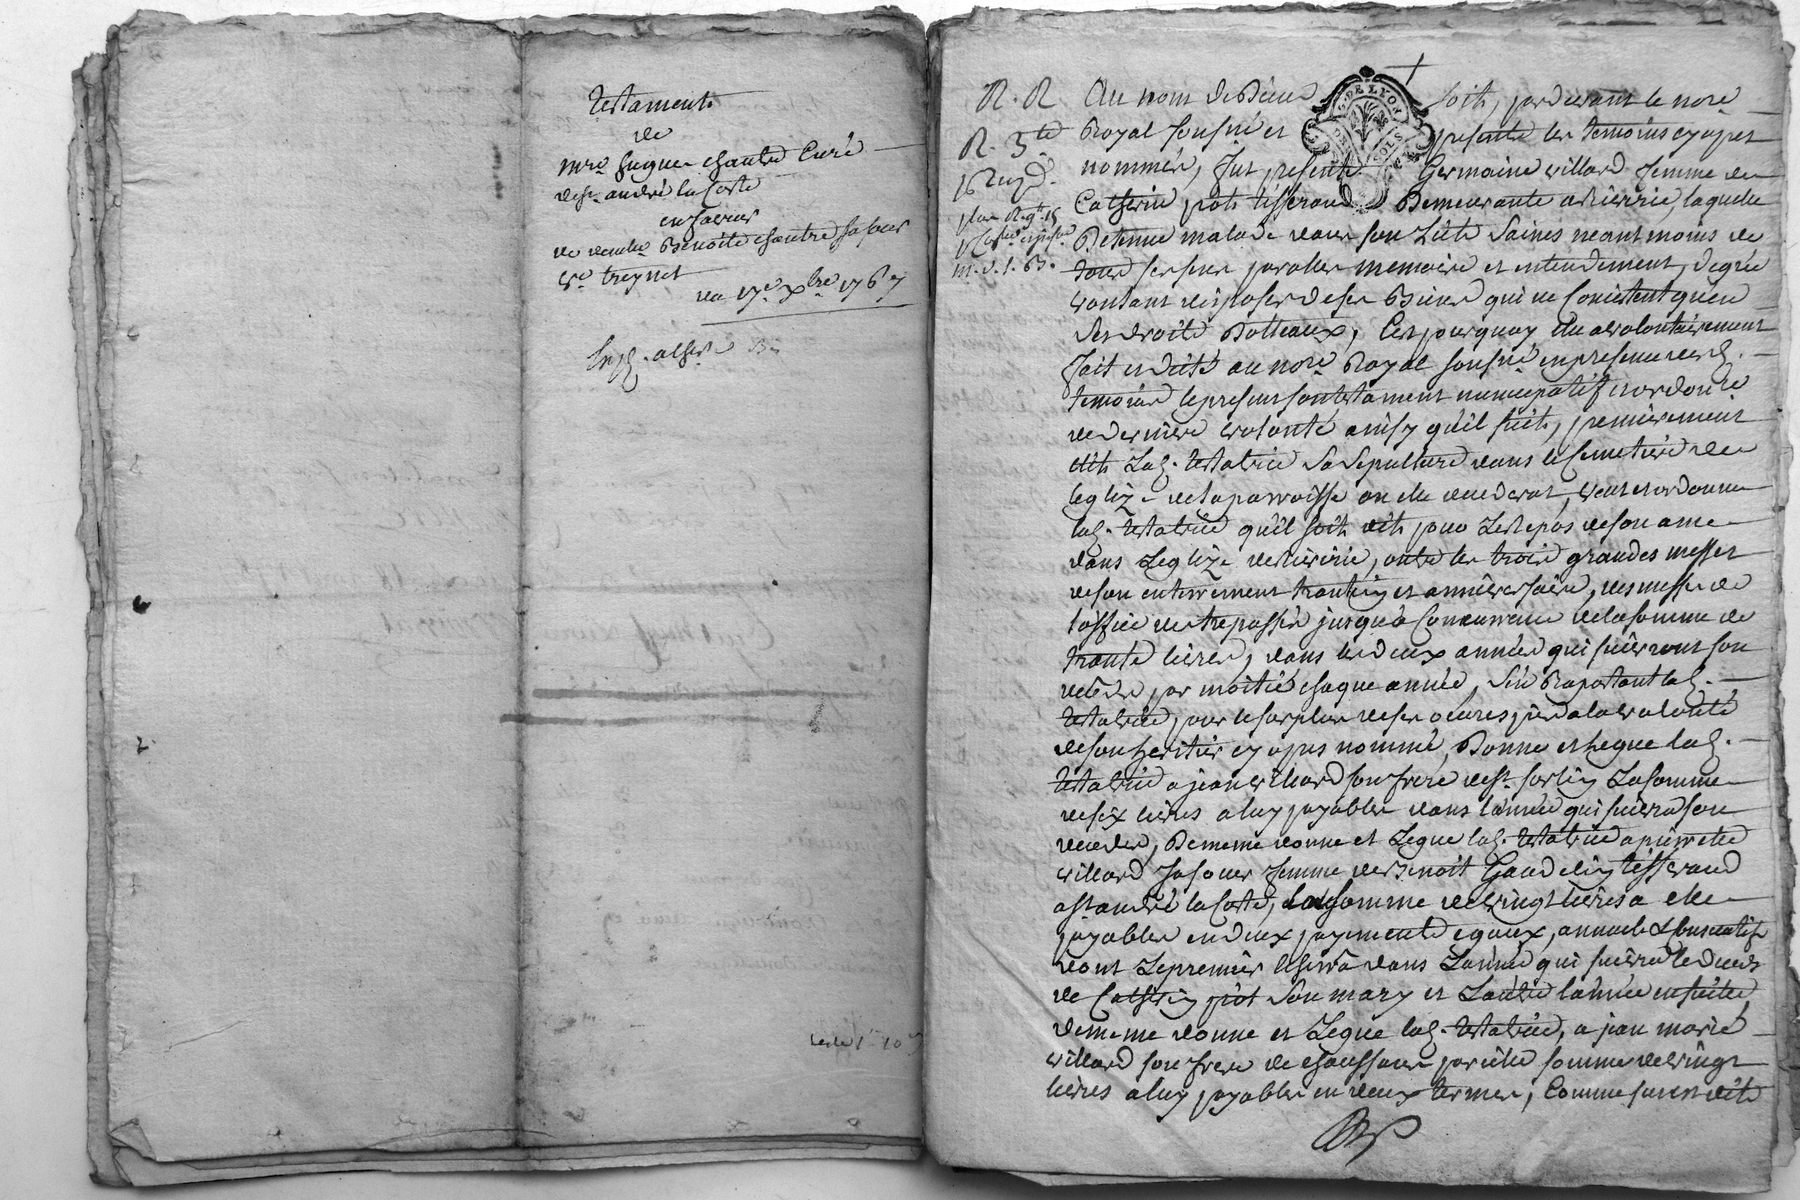 Testament
de
mre hugue chantre Curé
de st andré la Coste
en faveur
de demlle Benoite chantre sa soeur
ve treynet
du 17e xbre 1767
Exp.
R. R
R. 3te
Au nom de Dieu soit, pardevant le nore
Royal sousné et presents les temoins cyapres
nommés, fut presente Germaine villard femme de
Catherin piot tisserand Demeurante a Riverie, laquelle
Detenue malade dans son Lict Saines neantmoins de
tous ses sens parolle memoire et entendement, de gré
voulant disposer de ses Biens qui ne Consistent qu'en
des droits Dotteaux, C'est pourquoy elle a volontairement
fait et dicté au nore Royal sousné en presence desd.
temoins le present son testament nuncupatif et ordonce
de derniere volonté ainsy qu'il suit, premierement
elit Lad. testatrice Sa Sepulture dans le Cemetiere de
leglize de la parroisse ou elle decedera, veut et ordonne
lad. testatrice qu'il soit dit pour Le Repos de son ame
dans Leglize de Riverie, outre les trois grandes messes
de son enterrement trantin et anniversaire, des messes de
l'office des trepassés jusqu'a Concurrence de la somme de
trante livres, dans les deux années qui suivront son
decés par moitié chaque année, S'en Raportant lad.
testatrice, pour le surplus de ses oeuvres pies a la volonté
de son heritier cy apres nommé, Donne et Legue lad.
testatrice a jean villard son frere de st sorlin La somme
de six livres a luy payables dans l'année qui suivra son
decés, De meme donne et Legue lad. testatrice a pierrette
villard sa soeur femme de Benoit Gaudelin tisserand
a st andré la Coste, la somme de vingt livres a elle
payables en deux payements egaux, annuels & Consecutifs
dont Le premier se fera dans L'année qui suivra le decés
de Catherin piot Son mary et L'autre l'année ensuitte
de meme donne et Legue lad. testatrice, a jean marie
villard son frere de chaussan pareille somme de vingt
livres a luy payables en deux termes, Comme sus est dit